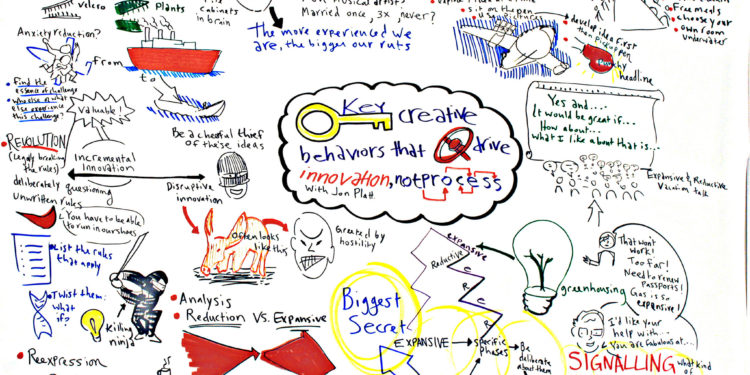 velcro
Plants
cabinets
in brain
musical artist?
Married once, 3x, never?
The more experienced we
are, the bigger our ruts
is it on the pen
develop idea first
then pick up pen
headline
Free meds
choose your
own room
underwater
Anxiety reduction?
from
to
Find the
essence of challenge
Who else or what
else experience
this challenge?
Valuable!
Be a cheerful thief
of these ideas
REVOLUTION
(Legally breaking
the rules)
Incremental
Innovation
deliberately questioning
Unwritten rules
You have to be able
to run in our shoes
Disruptive
innovation
Often looks
like this
Greeted by
hostility
Key creative
behaviors that drive
innovation, not process
With Jon Platt
Yes and....
It would be great if...
How about...
What I like about that is...
Expansive & Reductive
Vacation talk
List the rules
that apply
Twist them:
What
if?
Killing
ninja
Analysis
Reduction VS. Expansive
Reexpression
Biggest
Secret
Expansive
Reductive
E
R
E
R
EXPANSIVE
specific
phases
Be
deliberate
about them
greenhousing
That wont
work!
Too far!
Need to renew
passports!
Gas is so
expensive!
I'd like your
help with...
You are fabulous at...
SIGNALLING
what kind of